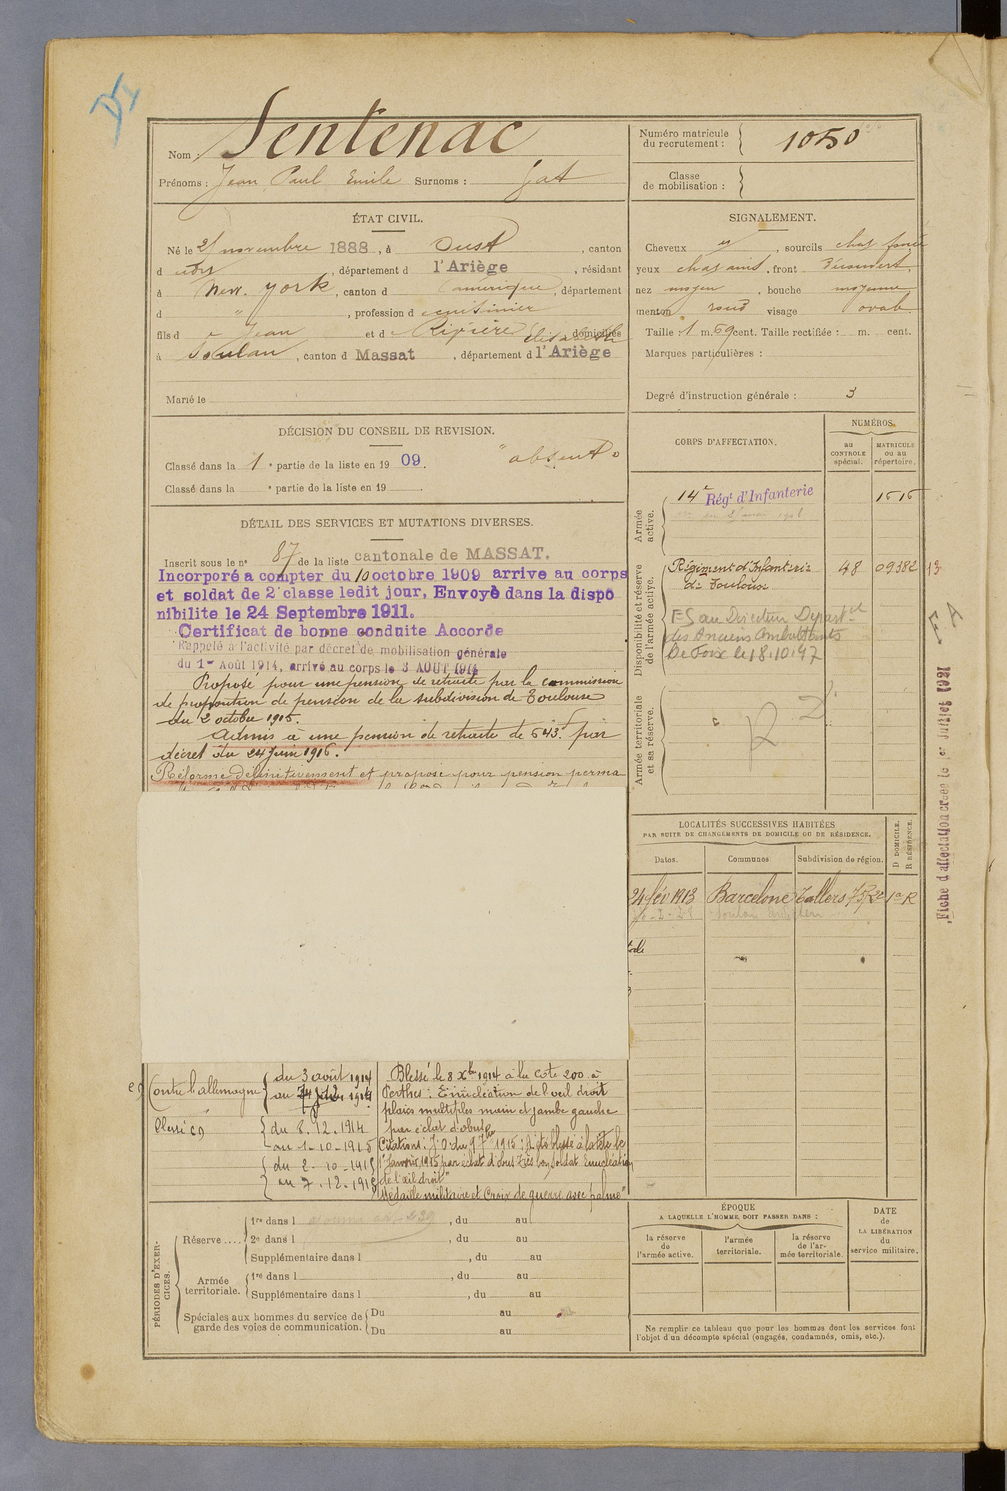 Nom Sentenac
Prénoms : Jean Paul Emile Surnoms : Gat
ÉTAT CIVIL.
Né le novembre 1888, à Oust, canton
d udit, département d l'Ariège, résidant
à New. york, canton d amérique, département
d " , profession d e cuisinier
fils d e Jean et d e Rivière Elisabeth domiciliés
à Soulan, canton d Massat, département d l'Ariège
Marié le
DÉCISION DU CONSEIL DE REVISION.
Classé dans la 1 e partie de la liste en 19 09. "absent"
Classé dans la e partie de la liste en 19
DÉTAIL DES SERVICES ET MUTATIONS DIVERSES.
Inscrit sous le n° 87 de la liste cantonale de MASSAT.
Incorporé a compter du 10 octobre 1909 arrive au corps
et soldat de 2e classe ledit jour, Envoyé dans la dispo
nibilite le 24 Septembre 1911.
Certificat de bonne conduite Accordé
Rappelé à l'activité par décret de mobilisation générale
du 1er Août 1914, arrivé au corps le 3 AOUT 1914
Proposé pour une pension de retraite par la commission
de proposition de pension de la subdivision de Toulouse
du 2 octobre 1915.
Admis à une pension de retraite de 643 f par
décret du 24 juin 1916.
Réformé définitivement et proposé pour pension perma
Contre l'allemagne du 3 août 1914
au
Blessé du 8.12.1914
au 1-10-1915
du 2-10-1915
au 7.12.1915
Blessé le 8 Xbre 1914 à la cote 200 à
Perthes : Enucléation de l'oeil droit
plaies multiples main et jambe gauche
par éclat d'obus
Citations : J.O du 9 1915 : a été blessé à la tête le
1er Janvier 1915 par éclat d'obus Très bon soldat Enucléation
de l'œil droit"
Médaille militaire et Croix de guerre avec palme"
PÉRIODES D'EXERCICES.
Réserve .... 1re dans l , du au
2e dans l , du au
Supplémentaire dans l , du au
Armée territoriale. 1re dans l , du au
Supplémentaire dans l , du au
Spéciales aux hommes du service de garde des voies de communication. Du au
Du au
Numéro matricule du recrutement : 1050
Classe de mobilisation :
SIGNALEMENT.
Cheveux et, sourcils chat foncé
yeux chat, front Découvert
nez moyen, bouche moyenne
menton rond visage ovale
Taille : 1 m. 69 cent. Taille rectifiée : m. cent.
Marques particulières :
Degré d'instruction générale : 3
CORPS D'AFFECTATION.
NUMÉROS.
au CONTROLE spécial.
MATRICULE ou au répertoire.
Armée active.
14e Régt d'Infanterie 1515
Disponibilité et réserve de l'armée active.
Régiment d'Infanterie 48 09382 13
de Toulouse
ES au Directeur Départel
des Anciens Combattants
De Foix le 18.10.47
Armée territoriale et sa réserve.
R
LOCALITÉS SUCCESSIVES HABITÉES
PAR SUITE DE CHANGEMENTS DE DOMICILE OU DE RÉSIDENCE.
Dates. Communes Subdivision de région. D DOMICILE. R RÉSIDENCE.
24 fév 1913 Barcelone Tallers R
ÉPOQUE
A LAQUELLE L'HOMME DOIT PASSER DANS :
la réserve de l'armée active.
l'armée territoriale.
la réserve de l'armée territoriale.
DATE de LA LIBÉRATION du service militaire.
Ne remplir ce tableau que pour les hommes dont les services font
l'objet d'un décompte spécial (engagés, condamnés, omis, etc.).
Fiche d'affectation créée le 1er Juillet 1921